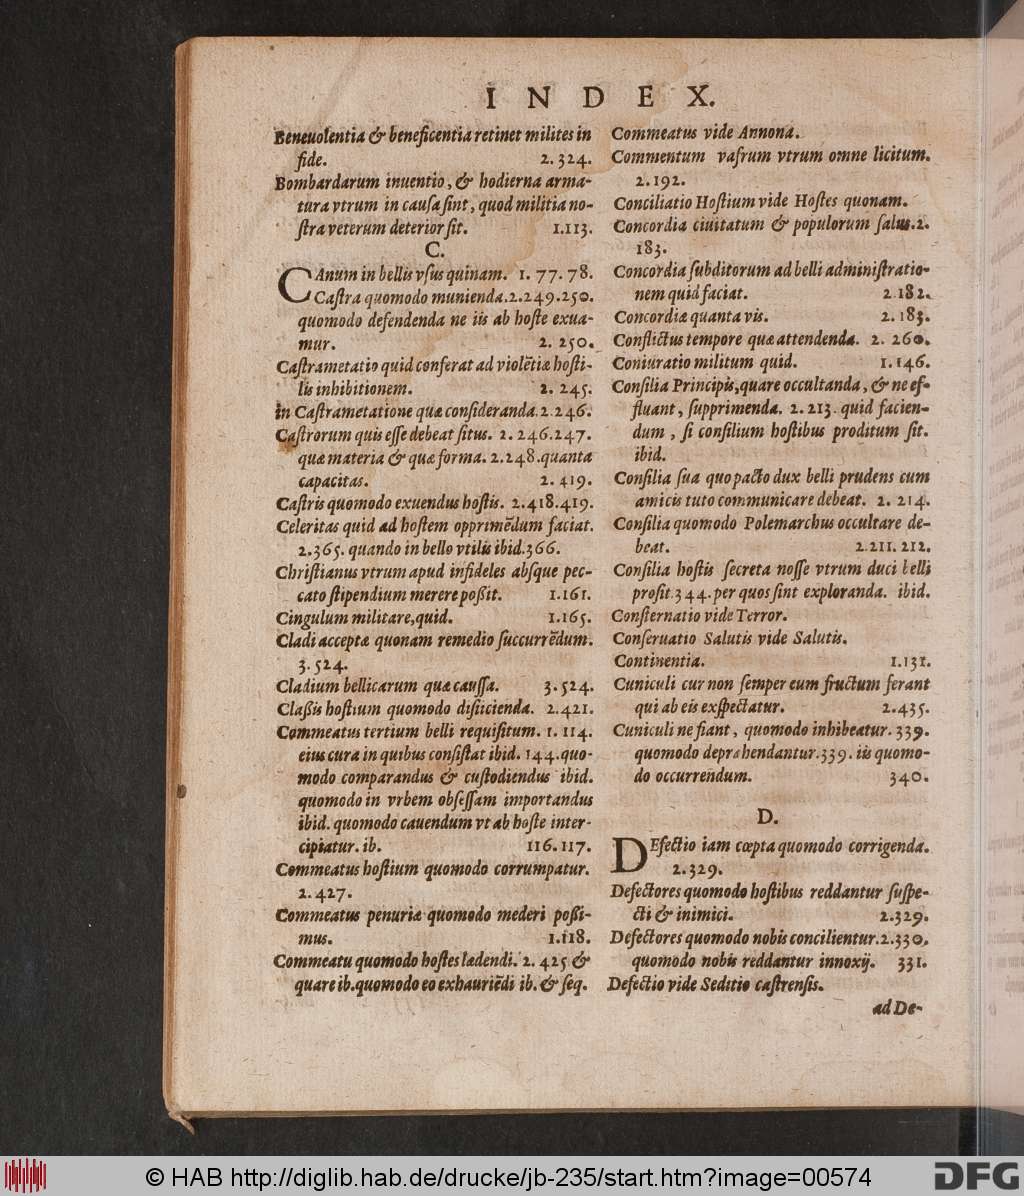 INDEX.
Beneuolentia & beneficentia retinet milites in
fide. 2. 324.
Bombardarum inuentio, & hodierna arma-
tura vtrum in causa sint, quod militia no-
stra veterum deterior sit. 1.113.
C.
CAnum in bellis vsus quinam. 1. 77. 78.
Castra quomodo munienda.2.249.250.
quomodo defendenda ne iis ab hoste exua-
mur. 2. 250.
Castrametatio quid conferat ad violētiæ hosti-
lis inhibitionem. 2. 245.
in Castrametatione quæ consideranda.2.246.
Castrorum quis esse debeat situs. 2. 246.247.
quæ materia & quæ forma. 2.248.quanta
capacitas. 2. 419.
Castris quomodo exuendus hostis. 2.418.419.
Celeritas quid ad hostem opprimēdum faciat.
2.365. quando in bello vtilis ibid.366.
Christianus vtrum apud infideles absque pec-
cato stipendium merere poßit. 1.161.
Cingulum militare,quid. 1.165.
Cladi acceptæ quonam remedio succurrēdum.
3.524.
Cladium bellicarum quæ caussa. 3.524.
Claßis hostium quomodo disiicienda. 2.421.
Commeatus tertium belli requisitum. 1. 114.
eius cura in quibus consistat ibid. 144.quo-
modo comparandus & custodiendus ibid.
quomodo in vrbem obsessam importandus
ibid. quomodo cauendum vt ab hoste inter-
cipiatur. ib. 116.117.
Commeatus hostium quomodo corrumpatur.
2.427.
Commeatus penuriæ quomodo mederi poßi-
mus. 1.118.
Commeatu quomodo hostes lædendi. 2. 425 &
quare ib.quomodo eo exhauriēdi ib. & seq.
Commeatus vide Annona.
Commentum vafrum vtrum omne licitum.
2.192.
Conciliatio Hostium vide Hostes quonam.
Concordia ciuitatum & populorum salus.2.
183.
Concordia subditorum ad belli administratio-
nem quid faciat. 2.182.
Concordiæ quanta vis. 2.183.
Conflictus tempore quæ attendenda. 2. 260.
Coniuratio militum quid. 1.146.
Consilia Principis,quare occultanda, & ne ef-
fluant, supprimenda. 2. 213. quid facien-
dum, si consilium hostibus proditum sit.
ibid.
Consilia sua quo pacto dux belli prudens cum
amicis tuto communicare debeat. 2. 214.
Consilia quomodo Polemarchus occultare de-
beat. 2.211. 212.
Consilia hostis secreta nosse vtrum duci belli
prosit.344.per quos sint exploranda. ibid.
Consternatio vide Terror.
Conseruatio Salutis vide Salutis.
Continentia. 1.131.
Cuniculi cur non semper eum fructum ferant
qui ab eis exspectatur. 2.435.
Cuniculi ne fiant, quomodo inhibeatur. 339.
quomodo deprehendantur.339. iis quomo-
do occurrendum. 340.
D.
DEfectio iam cœpta quomodo corrigenda.
2.329.
Defectores quomodo hostibus reddantur suspe-
cti & inimici. 2.329.
Defectores quomodo nobis concilientur.2.330.
quomodo nobis reddantur innoxij. 331.
Defectio vide Seditio castrensis.
ad De-
© HAB http://diglib.hab.de/drucke/jb-235/start.htm?image=00574
DFG